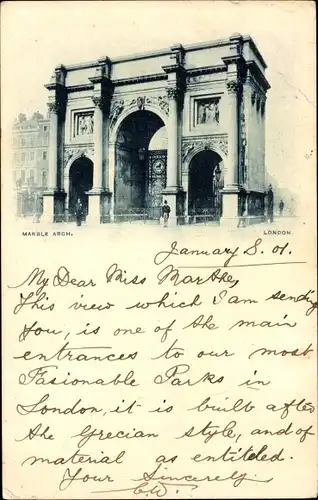 MARBLE ARCH. LONDON.
January 8. 01.
My Dear Miss Marthe,
This view which I am sending
you, is one of the main
entrances to our most
Fasionable Parks in
London, it is built after
the Grecian style, and of
material as entiteled.
Your Sincerely